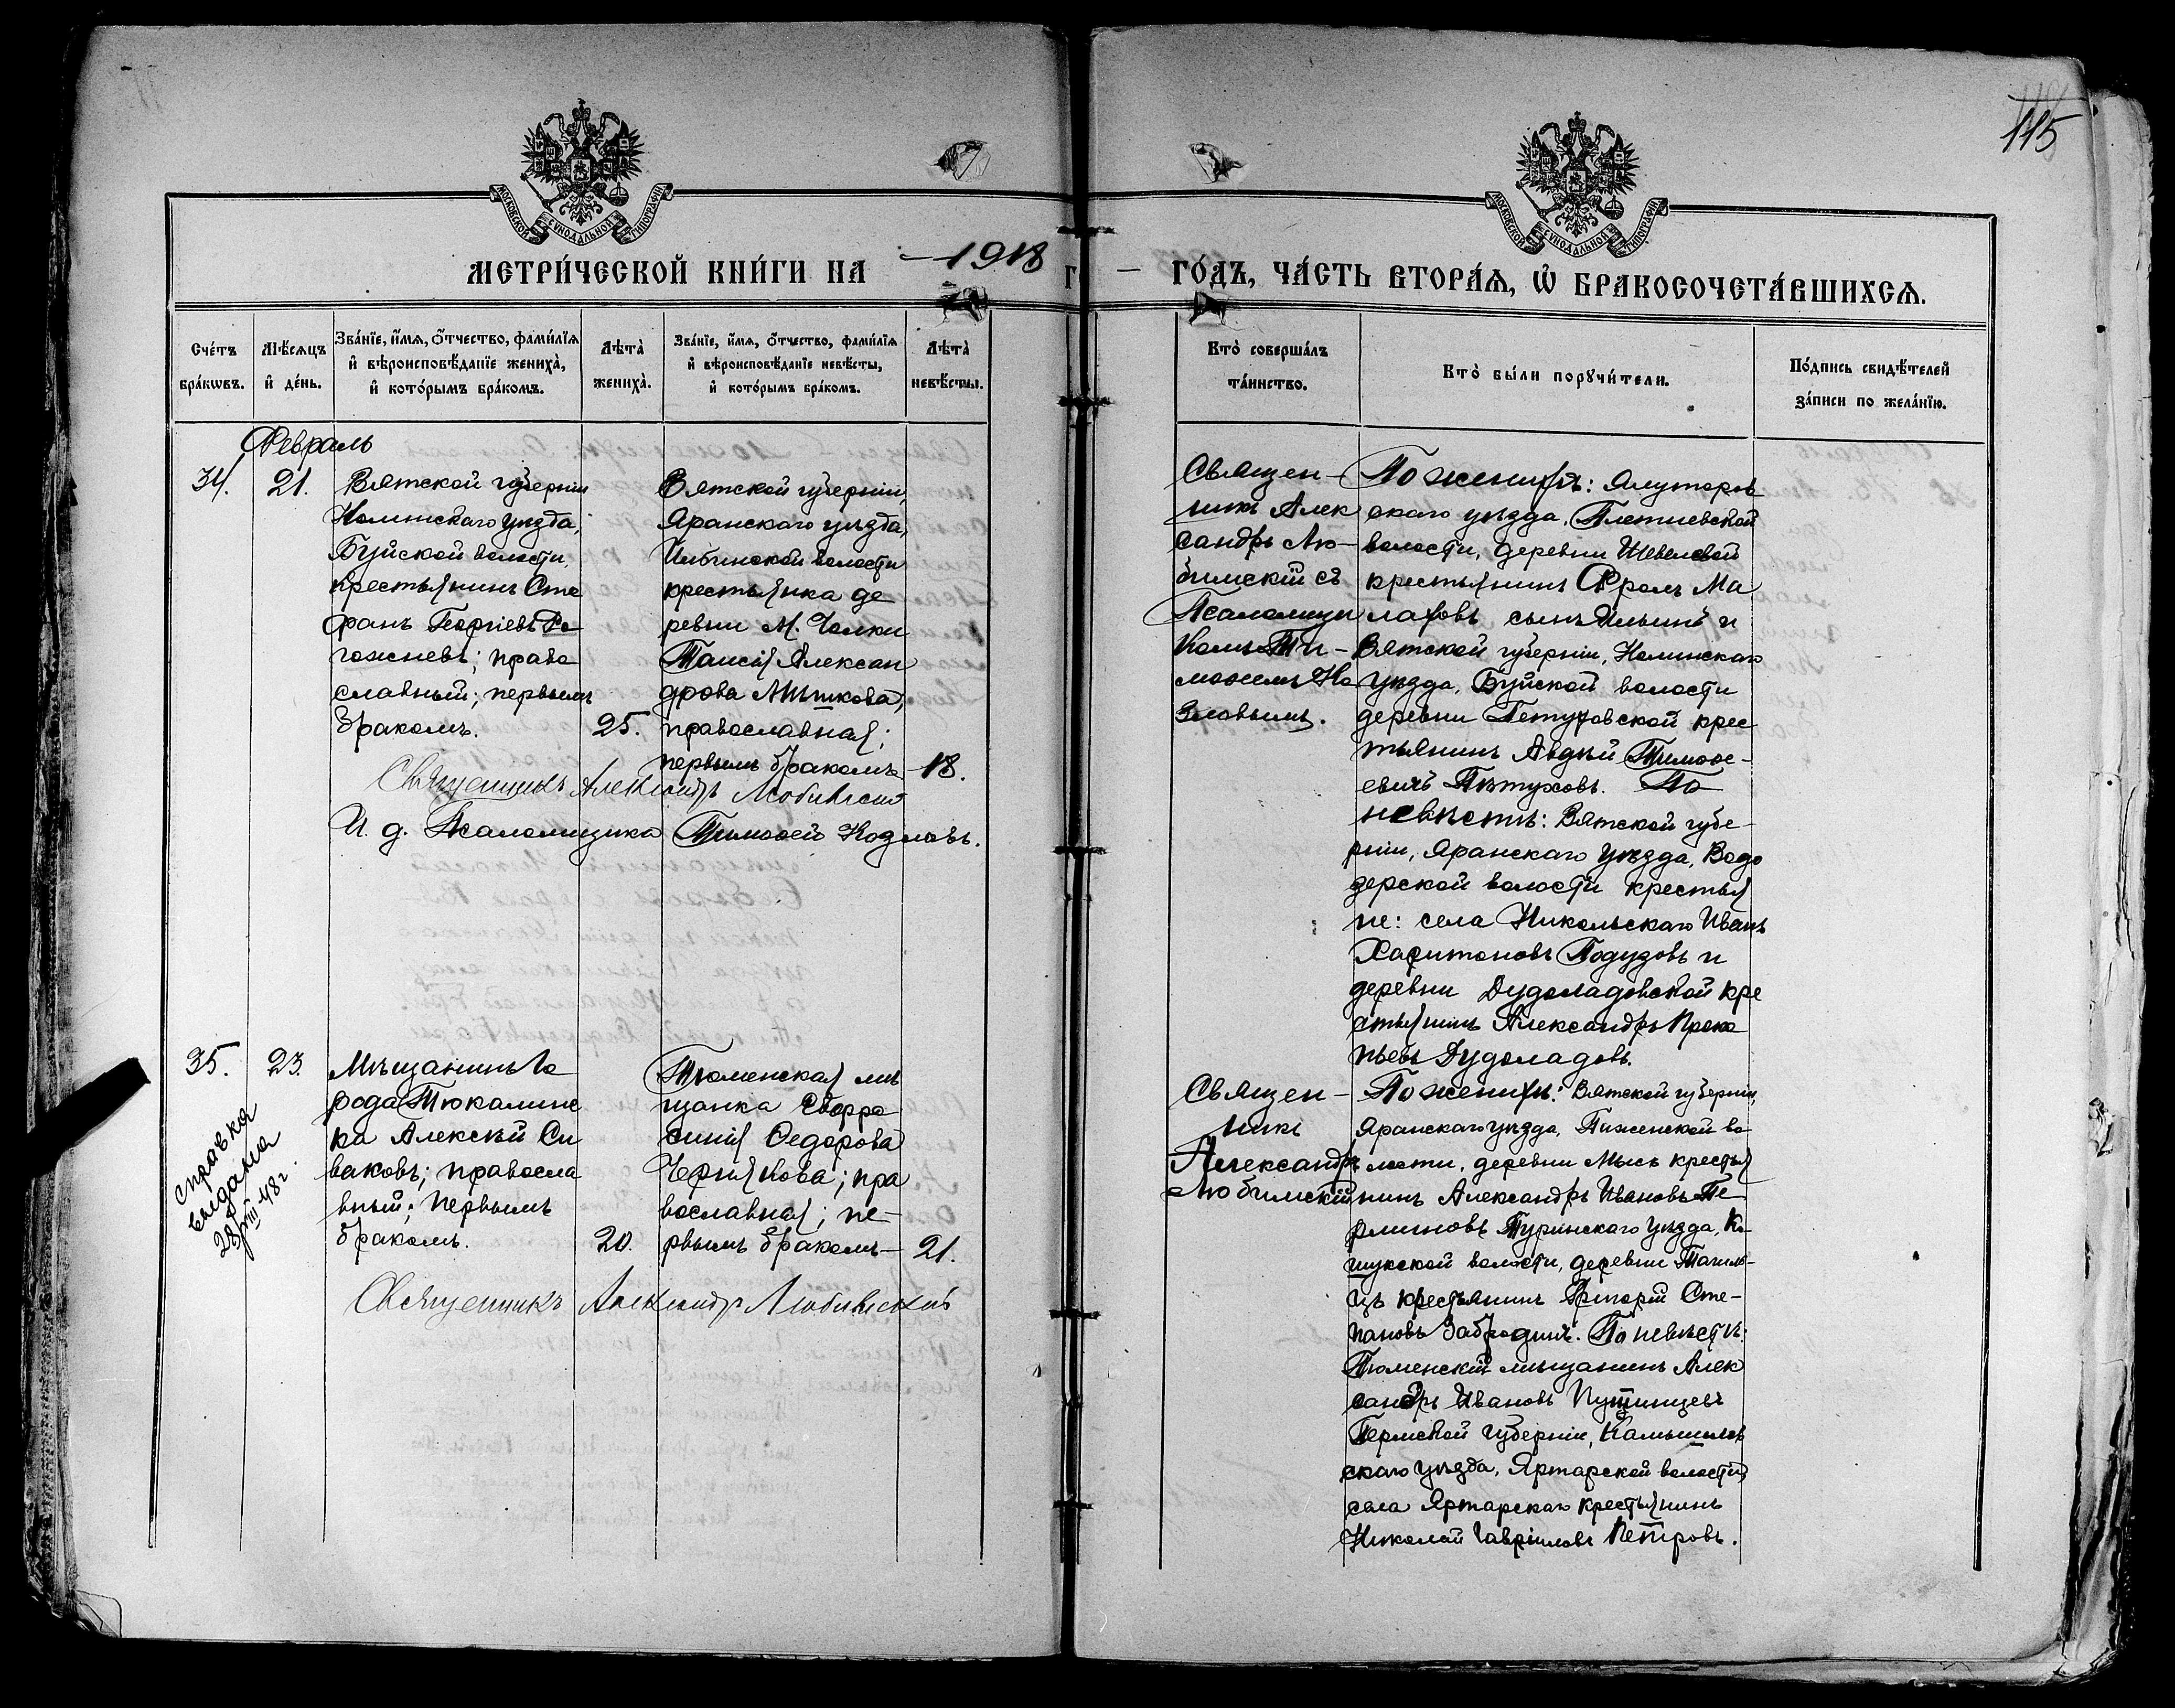 115
МОСКОВСКОЙ СѴНОДАЛЬНОЙ ТИПОГРАФІИ
МОСКОВСКОЙ СѴНОДАЛЬНОЙ ТИПОГРАФІИ
МЕТРИ́ЧЕСКОЙ КНИ́ГИ НА 1918
ГО́ДЪ, ЧА́СТЬ ВТОРА́Ѧ, Ѽ БРАКОСОЧЕТА́ВШИХСѦ.
Сче́тъ бра́кѡвъ.
Мѣ́сѧцъ и҆ де́нь.
Зва́нїе, и҆́мѧ, ѻ҆́тчество, фами́лїѧ
и҆ вѣроисповѣ́данїе жениха̀,
и҆ кото́рымъ бра́комъ.
Лѣта̀ жениха̀.
Зва́нїе, и҆́мѧ, ѻ҆́тчество, фами́лїѧ
и҆ вѣроисповѣ́данїе невѣ́сты,
и҆ кото́рымъ бра́комъ.
Лѣта̀ невѣ́сты.
Кто̀ соверша́лъ
та́инство.
Кто̀ бы́ли порꙋчи́тели.
По́дпись свидѣ́телей
за́писи по жела́нїю.
Февраль
34.
21.
Вятской губерніи
Нолинскаго уѣзда,
Буйской волости
крестьянинъ Сте
фанъ Георгіевъ Ро
гожневъ; право
славный; первымъ
бракомъ.
25.
Вятской губерніи,
Яранскаго уѣзда,
волости
крестьянка де
ревни М. Чолки
Таисія Алексан
дрова Мышкова,
православная;
первымъ бракомъ
18.
Священникъ Александръ Любимскій
И. д. Псаломщика Тимоѳей Козловъ.
Священ-
никъ Алек
сандръ Лю-
бимскій съ
Псаломщи
комъ Ти-
моѳеемъ Ко
зловымъ.
По женихѣ: Ялуторов
скаго уѣзда, Плетневской
волости, деревни Шевелевой
крестьянинъ Фролъ Ма
лаховъ сынъ Ильинъ и
Вятской губерніи, Нолинскаго
уѣзда, Буйской волости
деревни Петуховской крес
тьянинъ Авдѣй Тимоѳе-
евичъ Пѣтуховъ. По
невѣстѣ: Вятской губе-
рніи, Яранскаго уѣзда, Водо
зерской волости крестья
не: села Никольскаго Иванъ
Харитоновъ Подузовъ и
деревни Дудоладовской кре
стьянинъ Александръ Проко
пьевъ Дудоладовъ.
35.
23.
Мѣщанинъ го
рода Тюкалинс
ка Алексѣй Си
ваковъ; правосла
вный; первымъ
бракомъ.
20.
Тюменская мѣ
щанка Евфро
синія Ѳедорова
Чернякова; пра
вославная; пе-
рвымъ бракомъ
21.
справка
выдана
28/VIII-48 г.
Священникъ Александръ Любимскій
Священ-
никъ
Александръ
Любимскій
По женихѣ: Вятской губерніи,
Яранскаго уѣзда, Пиженской во
лости, деревни Мысъ крестья
нинъ Александръ Ивановъ Пе
рминовъ Туринскаго уѣзда, Ко
шукской волости, деревни Тагиль-
цъ крестьянинъ Григорій Сте-
пановъ Забродинъ. По невѣстѣ:
Тюменскій мѣщанинъ Алек
сандръ Ивановъ Путинцевъ
Пермской губерніи, Камышлов
скаго уѣзда, Яртарской волости,
села Яртарскаго крестьянинъ
Николай Гавріиловъ Петровъ.